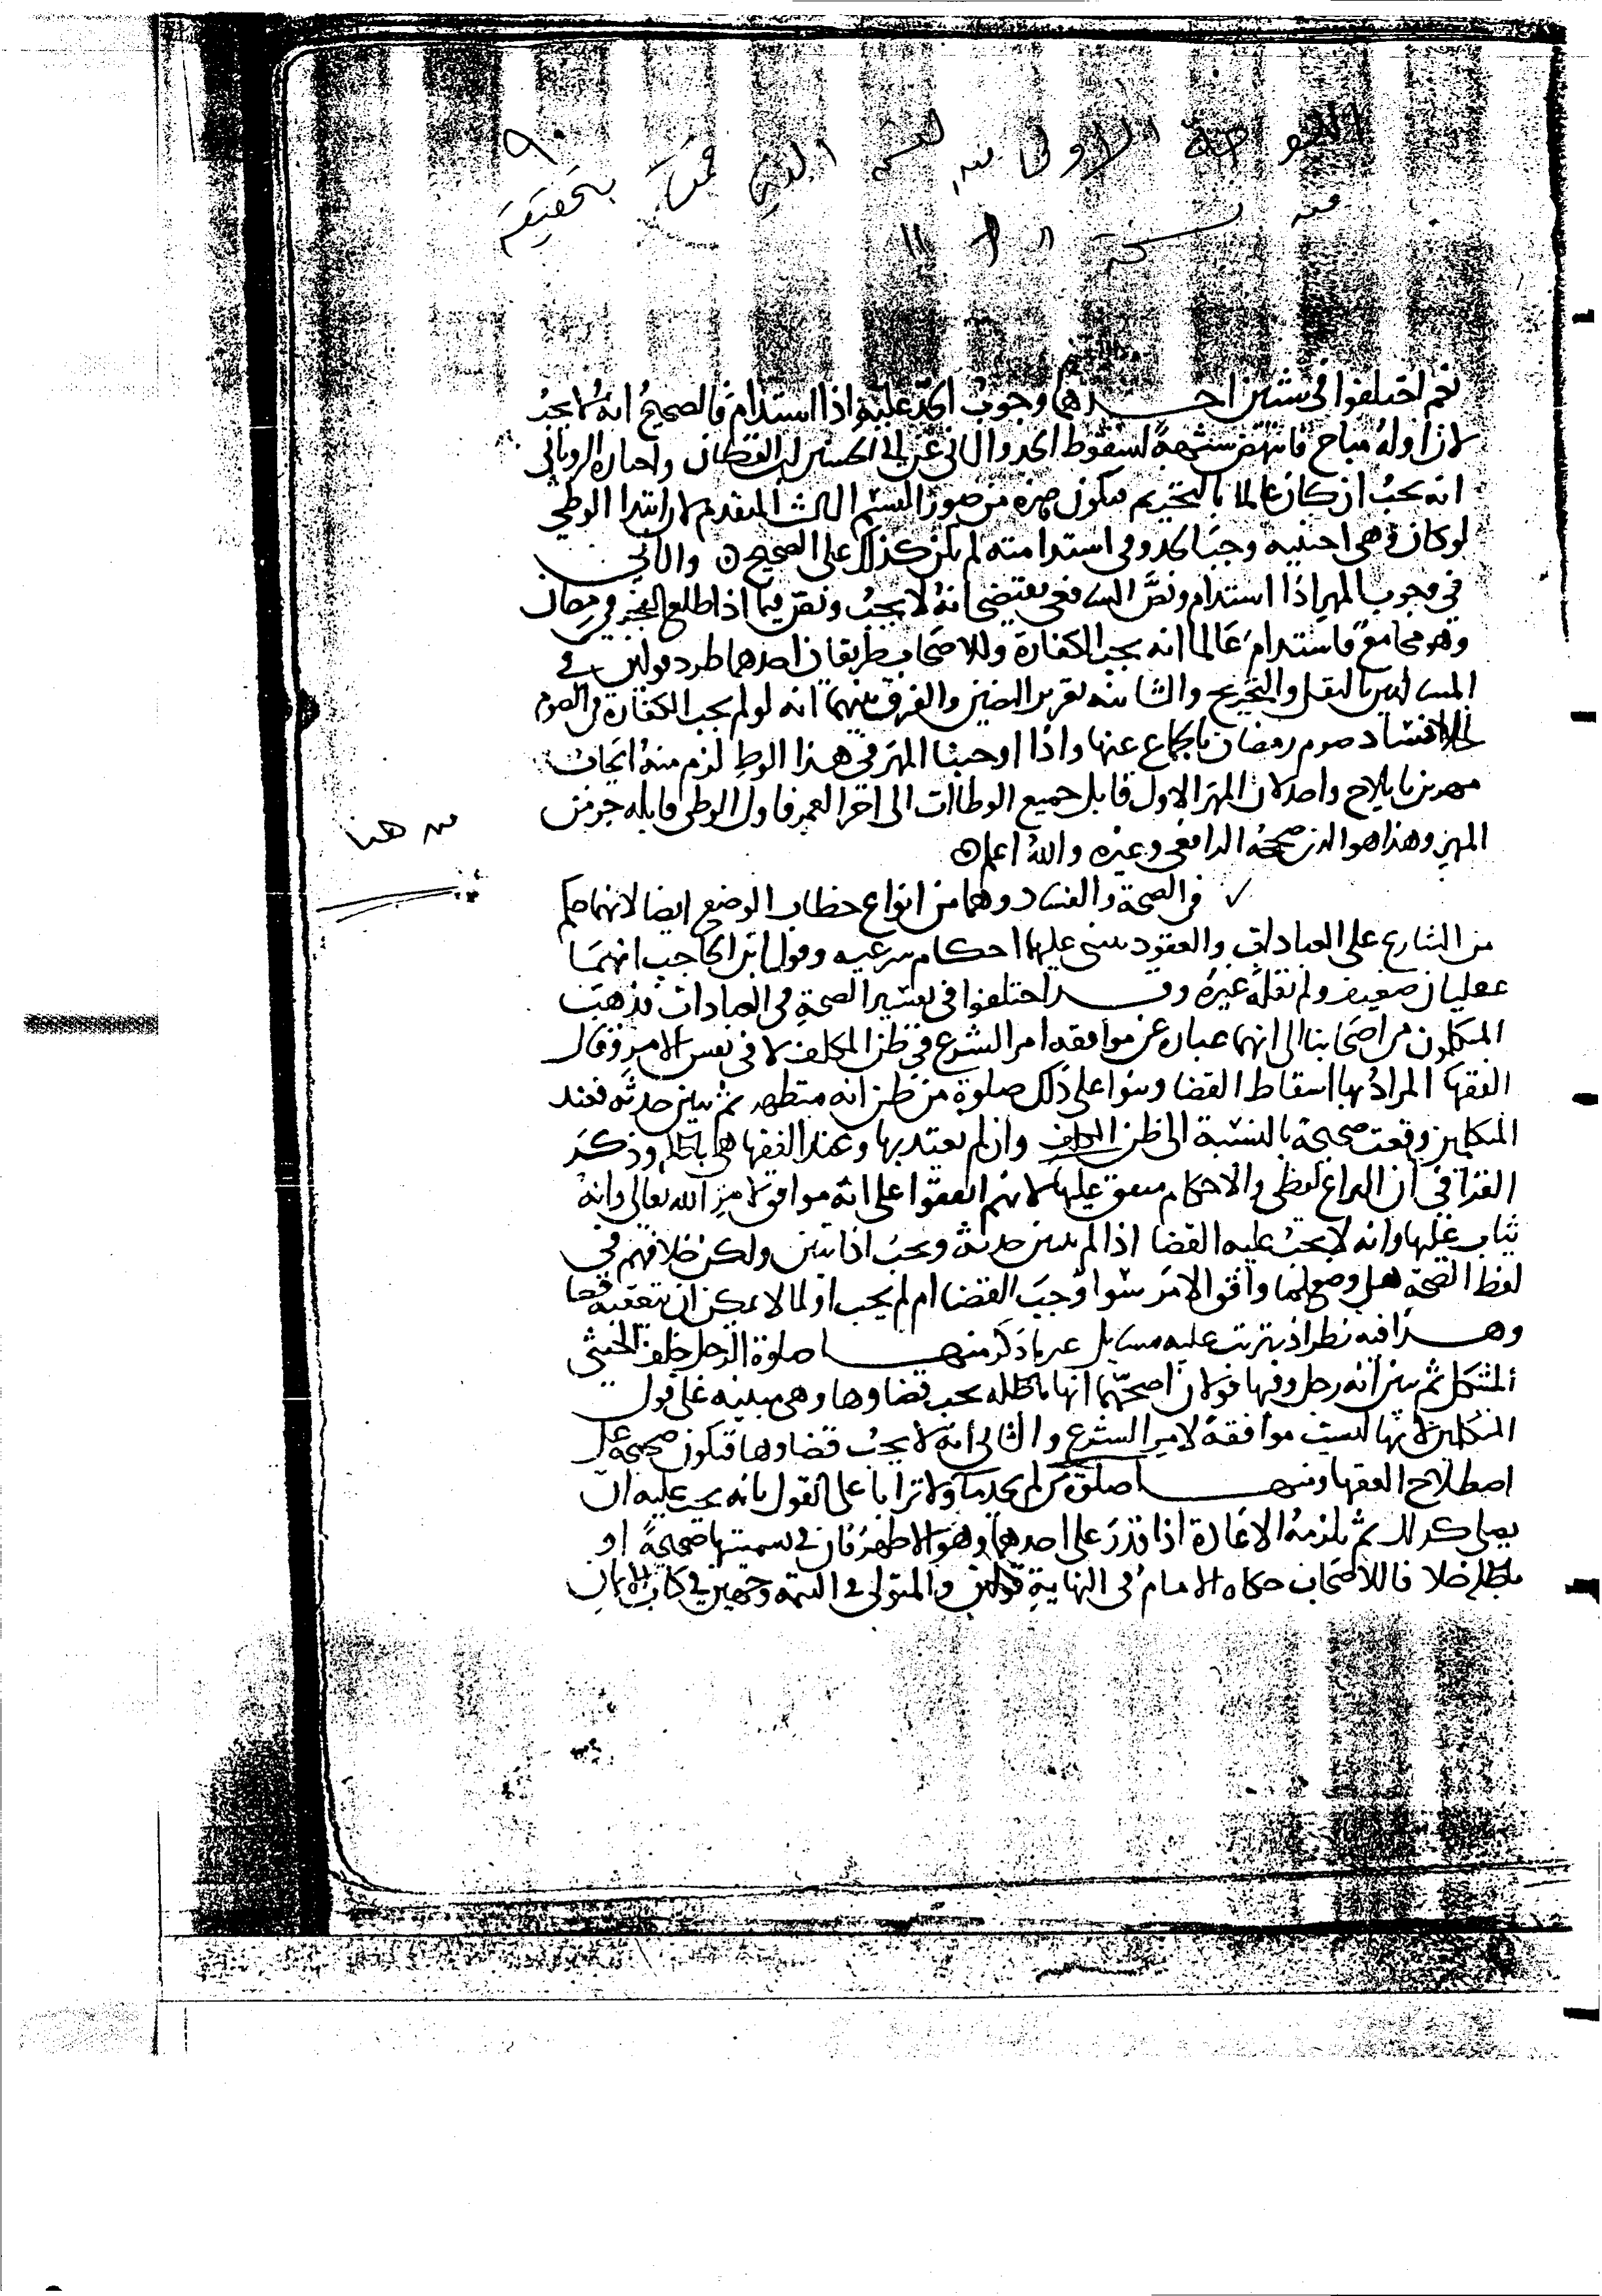 ٩٠
اللوحة الأولى من القسم الذي قمت بتحقيقه
من نسخة
نعم اختلفوا في شيئين احدهما وجوب الحد عليه اذا استدام فالصحيح انه لا يجب
لان اوله مباح فانتهض شبهة لسقوط الحد والثاني عن ابي الحسين ابن القطان واختاره الروياني
انه يجب ان كان عالما بالتحريم فيكون صورة من صور القسم الثالث المتقدم لان ابتدا الوطي
لو كان في هي اجنبيه وجب الحد وفي استدامته لم يكن كذلك على الصحيح والثاني
في وجوب المهر اذا استدام ونص الشافعي يقتضي انه لا يجب ونص فيما اذا طلع الفجر في رمضان
وهو مجامع فاستدام عالما انه يجب الكفارة وللاصحاب طريقان احدهما طرد قولين في
المسالتين بالنقل والتخريج والثانيه تقرير النصين والفرق بينهما انه لو لم يجب الكفارة في الصوم
لخلا افساد صوم رمضان بالجماع عنها واذا اوجبنا المهر في هذا الوطي لزم منه ايجاب
مهرين بايلاج واحد لان المهر الاول قابل جميع الوطات الى اخر العمر فاول الوطي قابله جز من
المهر وهذا هو الذي صححه الرافعي وغيره والله اعلم
من هنا
في الصحة والفساد وهما من انواع خطاب الوضع ايضا لانهما حكم
من الشارع على العبادات والعقود يبنى عليها احكام شرعيه وقول ابن الحاجب انهما
عقليان ضعيف ولم نقله غيره وقد اختلفوا في تفسير الصحة في العبادات فذهب
المتكلمون من اصحابنا الى انها عبارة عن موافقه امر الشرع في ظن المكلف لا في نفس الامر وقال
الفقها المراد بها اسقاط القضا وبنوا على ذلك صلوة من ظن انه متطهر ثم تبين حدثه فعند
المتكلمين وقعت صحيحة بالنسبة الى ظن المكلف وان لم يعتد بها وعند الفقها هي باطله وذكر
القرافي ان النزاع لفظي والاحكام متفق عليها لانهم اتفقوا على انه موافق لامر الله تعالى وانه
يثاب عليها وانه لا يجب عليه القضا اذا لم يتبين حدثه ويجب اذا تبين ولكن خلافهم في
لفظ الصحة هل وضع لما وافق الامر سوا وجب القضا ام لم يجب او لما لا يمكن ان يتعقبه قضا
وهذا فيه نظر اذ يترتب عليه مسايل غير ما ذكر منها صلوة الرجل خلف الخنثى
المشكل ثم تبين انه رجل وفيها قولان اصحهما انها باطله يجب قضاوها وهي مبنيه على قول
المتكلمين لانها ليست موافقة لامر الشرع والثاني انه لا يجب قضاوها فتكون صحيحة على
اصطلاح الفقها ومنها صلوة من لم يجد ما ولا ترابا على القول بانه يجب عليه ان
يصلي كذلك ثم يلزمه الاعادة اذا قدر على احدهما وهو الاظهر فان في تسميتها صحيحة او
باطله خلافا للاصحاب حكاه الامام في النهاية قولين والمتولي في التتمه وجهين في كتاب الايمان